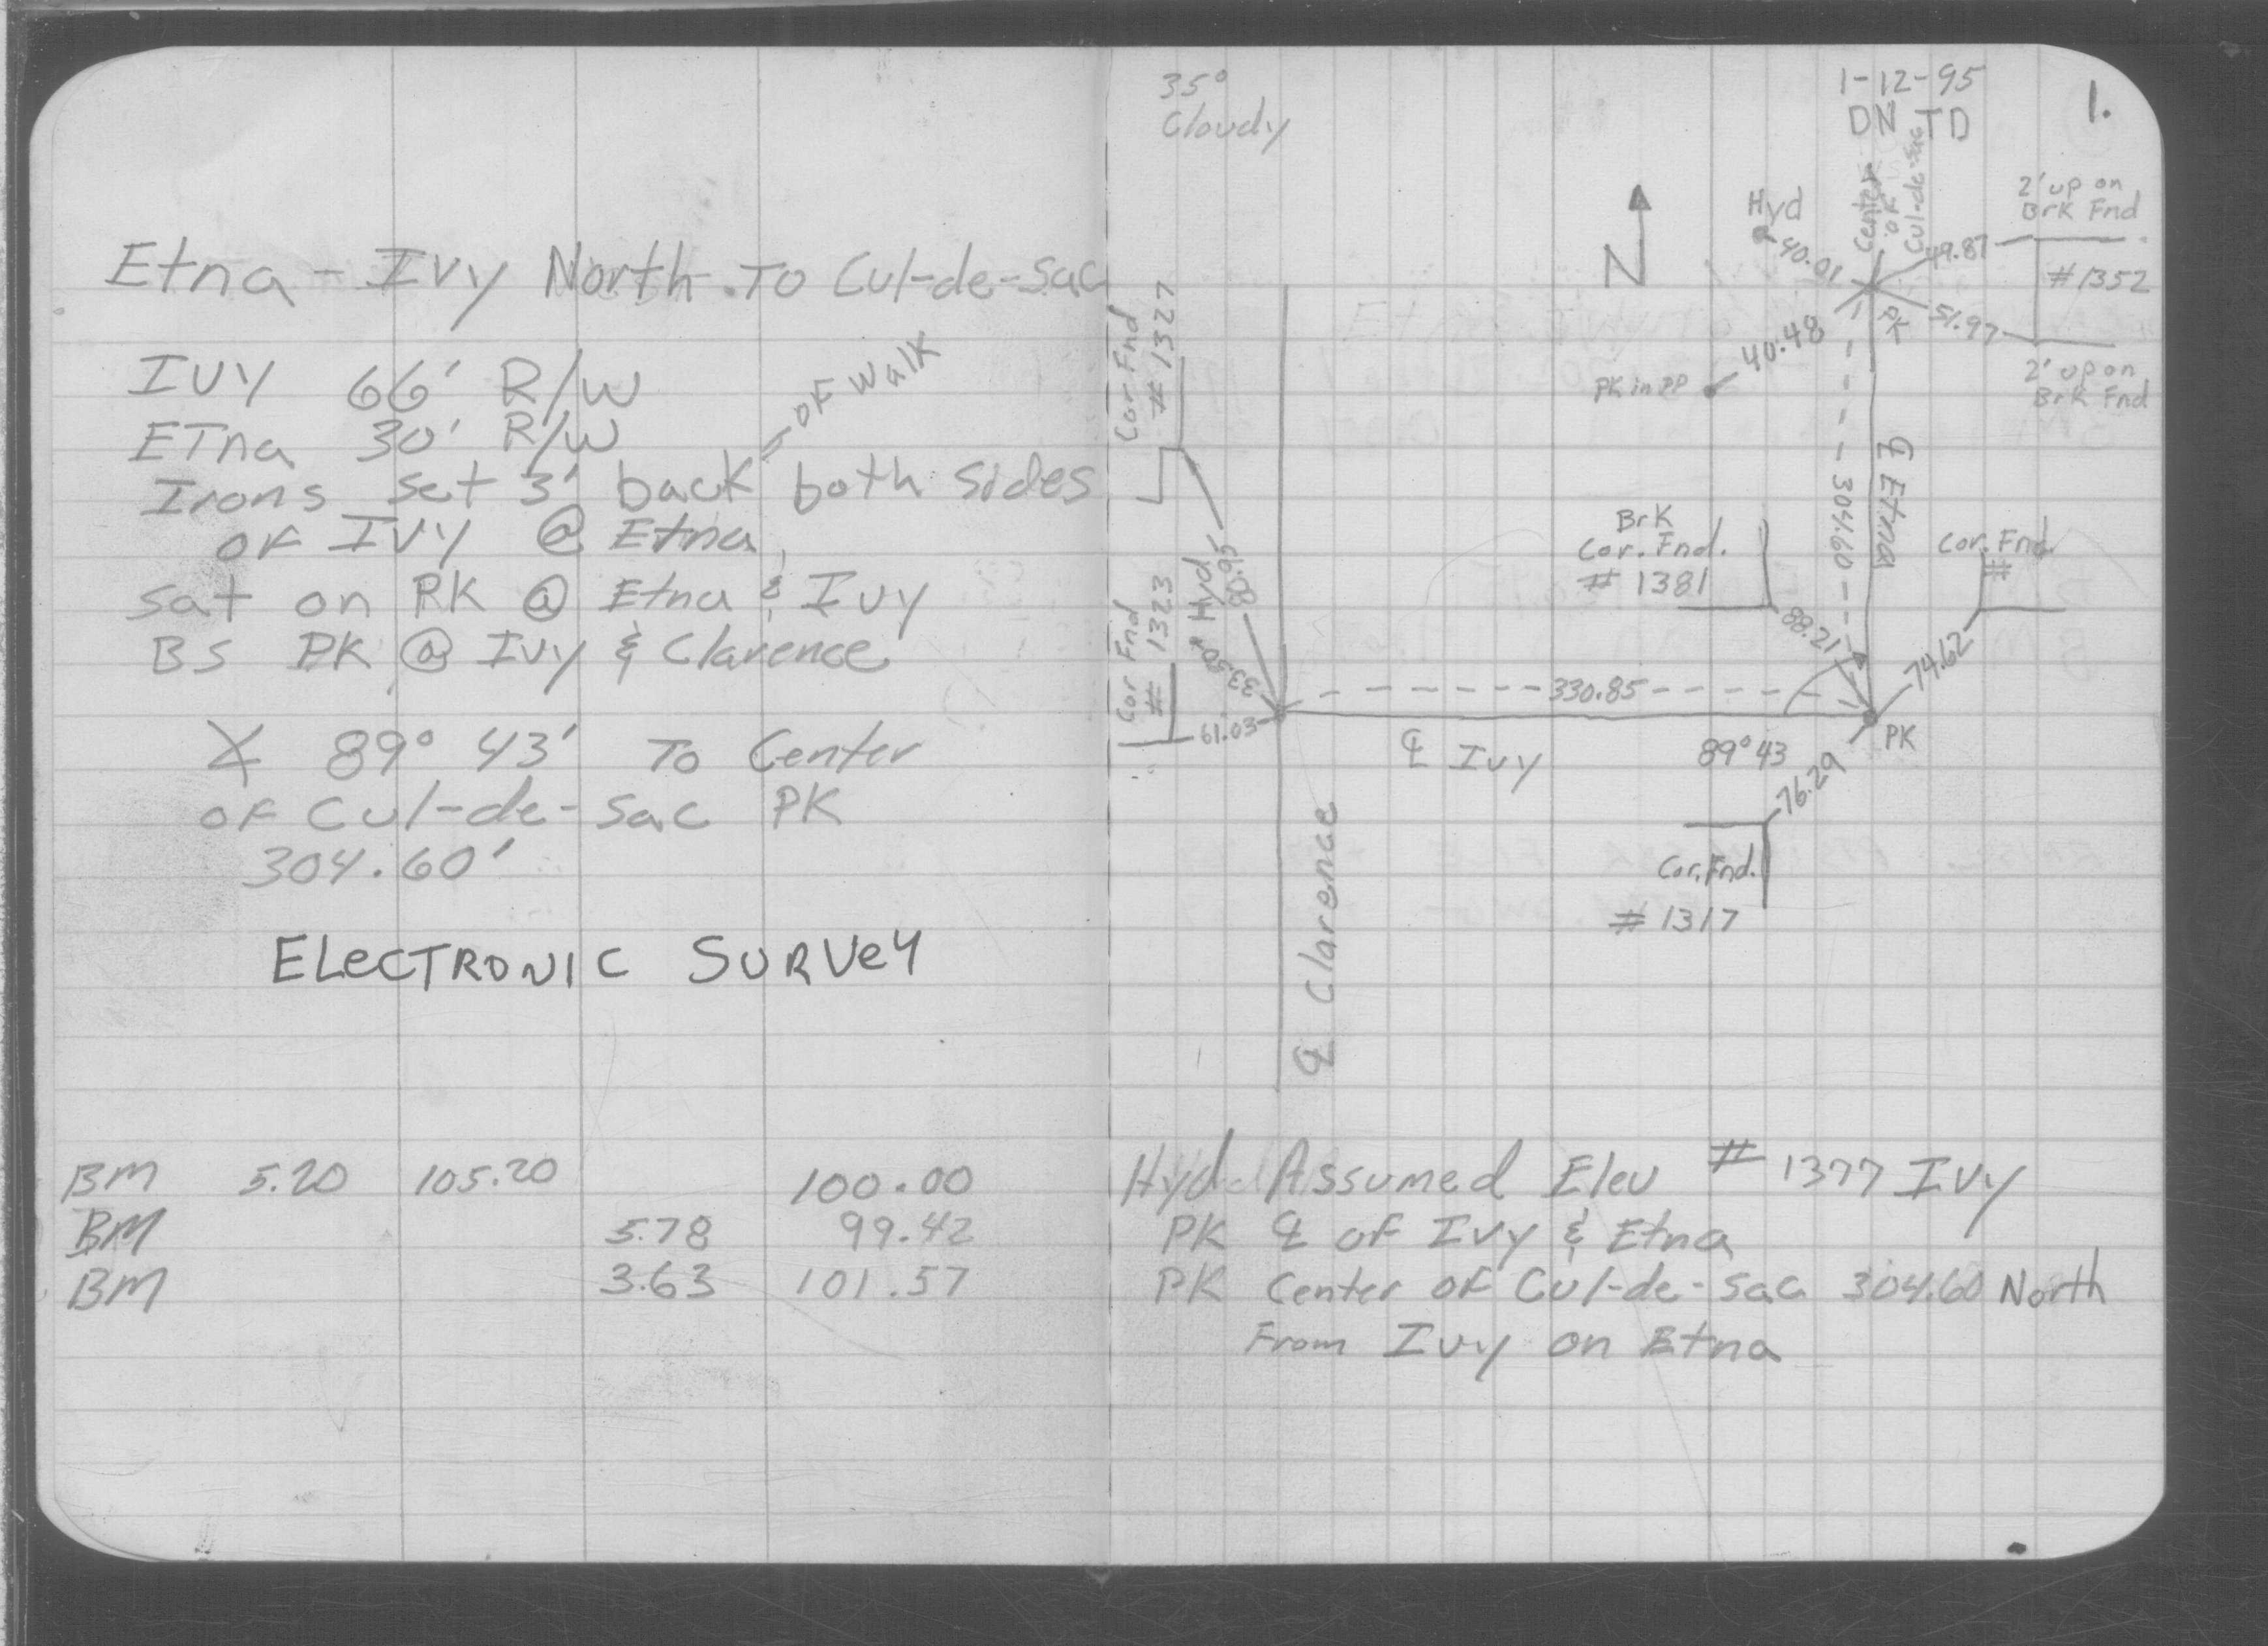 Etna - Ivy North To Cul-de-sac
IVY 66' R/W
ETna 30' R/W
OF Walk
Irons set 3' back both sides
of IVY @ Etna
Sat on PK @ Etna & Ivy
BS PK @ Ivy & Clarence
89° 43' To Center
of Cul-de-sac PK
304.60'
ELeCTRONIC SURVeY
BM 5.20 105.20 100.00
BM 5.78 99.42
BM 3.63 101.57
35°
Cloudy
1-12-95
DN TD
1.
N
Hyd
40.01
Center
of
Cul-de-sac
49.87
2' up on
Brk Fnd
# 1352
51.97
2' up on
Brk Fnd
PK
40.48
PK in PP
Cor Fnd
# 1327
80.95
Hyd
33.50
Cor Fnd
# 1323
61.03
℄ Etna
304.60
Brk
Cor. Fnd.
# 1381
88.21
Cor. Fnd.
#
74.62
330.85
PK
℄ Ivy
89° 43
76.29
Cor. Fnd.
# 1317
℄ Clarence
Hyd Assumed Elev # 1377 Ivy
PK ℄ of Ivy & Etna
PK Center of Cul-de-sac 304.60 North
From Ivy on Etna